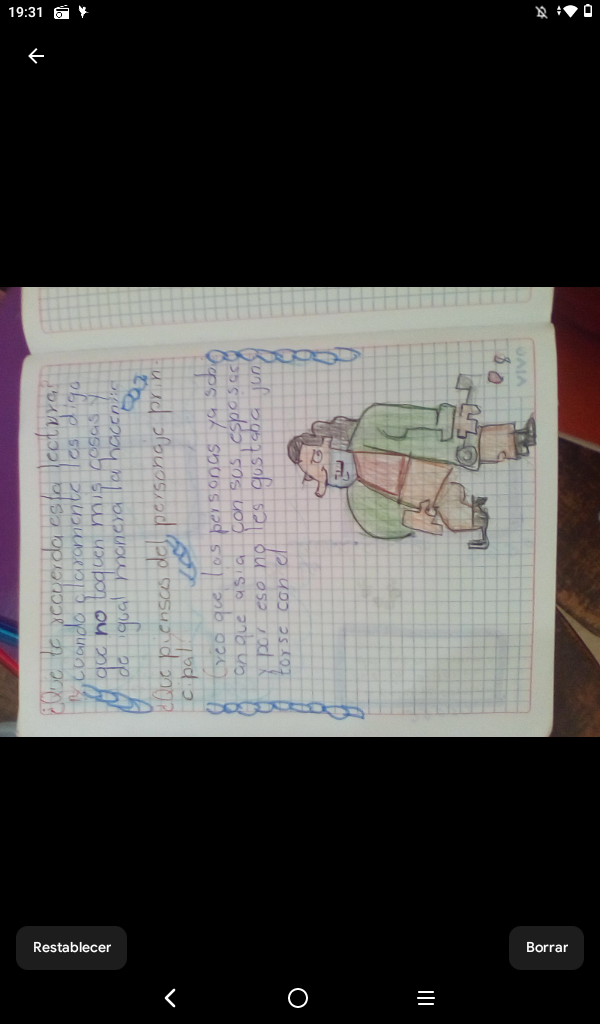 19:31
¿Que te recuerda esta lectura?
R: cuando claramente les digo
que no toquen mis cosas y
de igual manera la hacen
¿Que piensas del personaje prin-
cipal?
Creo que las personas ya sab
an que asia con sus esposas
y por eso no les gustaba jun
tarse con el
Restablecer
Borrar